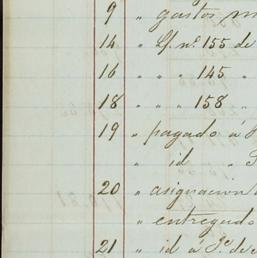 9 " gastos m
14 " Lf. nº 155 de
16 " " " 145 "
18 " " " 158 "
19 " pagado á
" id "
20 " asignacion
" entregado
21 " id á Sº. de